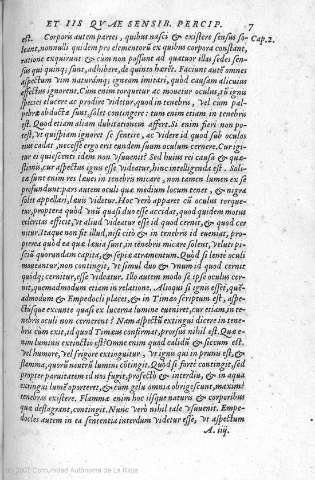 ET IIS QVAE SENSIB. PERCIP. 7
est. Corporis autem partes, quibus nasci & existere sensus so- Cap. 2.
leant, nonnulli quidem pro elementorũ ex quibus corpora constant,
ratione exquirunt & cum non possunt ad quatuor illas sedes sen-
sus qui quinque sunt, adhibere, de quinto hærēt. Faciunt autē omnes
aspectum vim naturamque igneam imitari, quòd causam alicuius
affectus ignorent. Cum enim torquetur ac mouetur oculus, tū ignis
species elucere ac prodire videtur, quod in tenebris, vel cum pal-
pebræ abductæ sunt, solet contingere: tum enim etiam in tenebris
est. Quod etiam aliam dubitationem affert. Si enim fieri non po-
test, vt quispiam ignoret se sentire, ac videre id quod sub oculos
eius cadat, necesse ergo erit eundem suum oculum cernere. Cur igi-
tur ei quiescenti idem non vsuuenit? Sed huius rei causa & quæ-
stionis, cur aspectus ignis esse videatur, hinc intelligenda est. Soli-
ta sunt enim res læues in tenebris micare, non tamen lumen ex se
profundunt: pars autem oculi quæ medium locum tenet, & nigra
solet appellari, læuis videtur. Hoc verò apparet cū oculus torque-
tur, propterea quòd vnū quasi duo esse accidat, quod quidem motus
celeritas efficit, vt aliud videatur esse id quod cernit, & quod cer-
nitur. Itaque non fit illud, nisi citò & in tenebris id eueniat, pro-
pterea quòd ea quæ læuia sunt, in tenebris micare solent, veluti pi-
sciū quorundam capita, & sepiæ atramentum. Quòd si lentè oculi
mutentur, non contingit, vt simul duo & vnum id quod cernit
quodque cernitur, esse videatur. Illo autem modo se ipse oculus cer-
nit, quemadmodum etiam in relatione. Alioqui si ignis esset, quē-
admodum & Empedocli placet, & in Timæo scriptum est, aspec-
túsque exeunte quasi ex lucerna lumine eueniret, cur etiam in te-
nebris oculi non cernerent? Nam aspectū extingui dicere in tene-
bris cùm exit, id quod Timæus confirmat, prorsus nihil est. Quæ e-
nim luminis extinctio est? Omne enim quod calidū & siccum est,
vel humore, vel frigore extinguitur, vt ignis qui in prunis est, &
flamma, quorū neutrū lumini cōtingit. Quòd si fortè contingit, sed
propter paruitatem id nos fugit, profectò & interdiu, & in aqua
extingui lumē oporteret, & cum gelu omnia obrigescunt, maximè
tenebras existere. Flammæ enim hoc iisque naturis & corporibus
quæ deflagrant, contingit. Nunc verò nihil tale vsuuenit. Empe-
docles autem in ea sententia interdum videtur esse, vt aspectum
A. iiij.
Comunidad Autónoma de La Rioja